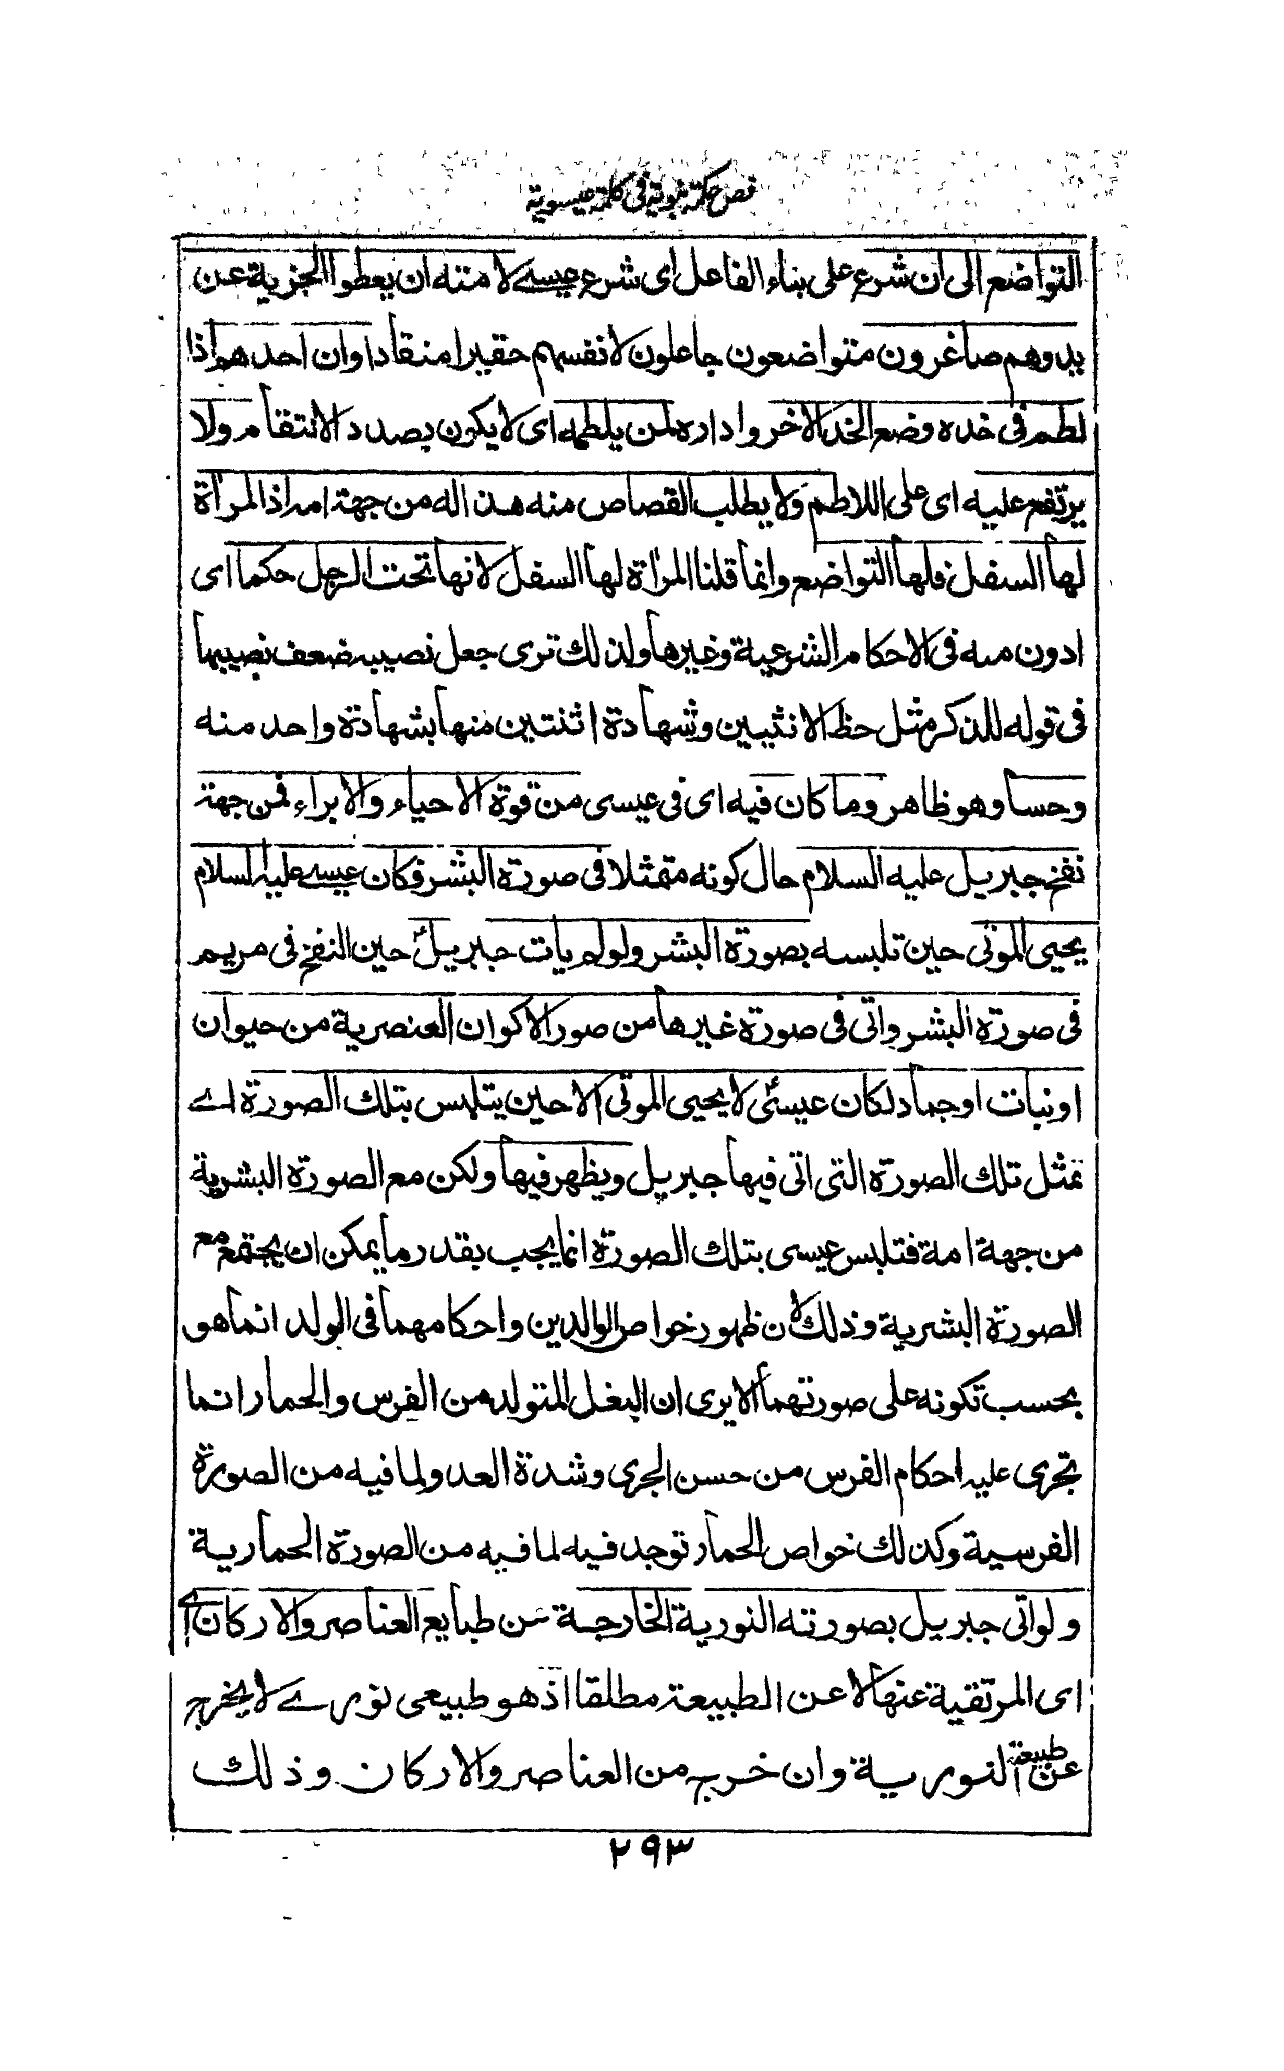 فص حكمة نبوية فى كلمة عيسوية
التواضع الى ان شرع على بناء الفاعل اى شرع عيسے لامته ان يعطوا الجزية عن
يد وهم صاغرون متواضعون جاعلون لانفسهم حقيرا منقادا وان احدهم اذا
لطم فى خده وضع الخد الاخر واداره لمن يلطمه اى لا يكون بصدد الانتقام ولا
يرتفع عليه اى على اللاطم ولا يطلب القصاص منه هذا له من جهة امه اذ المرأة
لها السفل فلها التواضع وانما قلنا المرأة لها السفل لانها تحت الرجل حكما اى
ادون منه فى الاحكام الشرعية وغيرها ولذلك ترى جعل نصيبه ضعف نصيبها
فى قوله للذكر مثل حظ الانثيين وشهادة اثنتين منها بشهادة واحد منه
وحسا وهو ظاهر وما كان فيه اى فى عيسى من قوة الاحياء والابراء فمن جهة
نفخ جبريل عليه السلام حال كونه متمثلا فى صورة البشر فكان عيسے عليه السلام
يحيى الموتى حين تلبسه بصورة البشر ولو لم يات جبريل حين النفخ فى مريم
فى صورة البشر واتى فى صورة غيرها من صور الاكوان العنصرية من حيوان
او نبات او جماد لكان عيسى لا يحيى الموتى الا حين يتلبس بتلك الصورة اے
تمثل تلك الصورة التى اتى فيها جبريل ويظهر فيها ولكن مع الصورة البشرية
من جهة امه فتلبس عيسى بتلك الصورة انما يجب بقدر ما يمكن ان يجتمع مع
الصورة البشرية وذلك لان ظهور خواص الوالدين واحكامهما فى الولد انما هو
بحسب تكونه على صورتهما الا يرى ان البغل المتولد من الفرس والحمار انما
تجرى عليه احكام الفرس من حسن الجرى وشدة العدو لما فيه من الصورة
الفرسية وكذلك خواص الحمار توجد فيه لما فيه من الصورة الحمارية
ولو اتى جبريل بصورته النورية الخارجة عن طبايع العناصر والاركان اے
اى المرتقية عنها لا عن الطبيعة مطلقا اذ هو طبيعى نورے لا يخرج
عن طبيعة النورية وان خرج من العناصر والاركان وذلك
٢٩٣